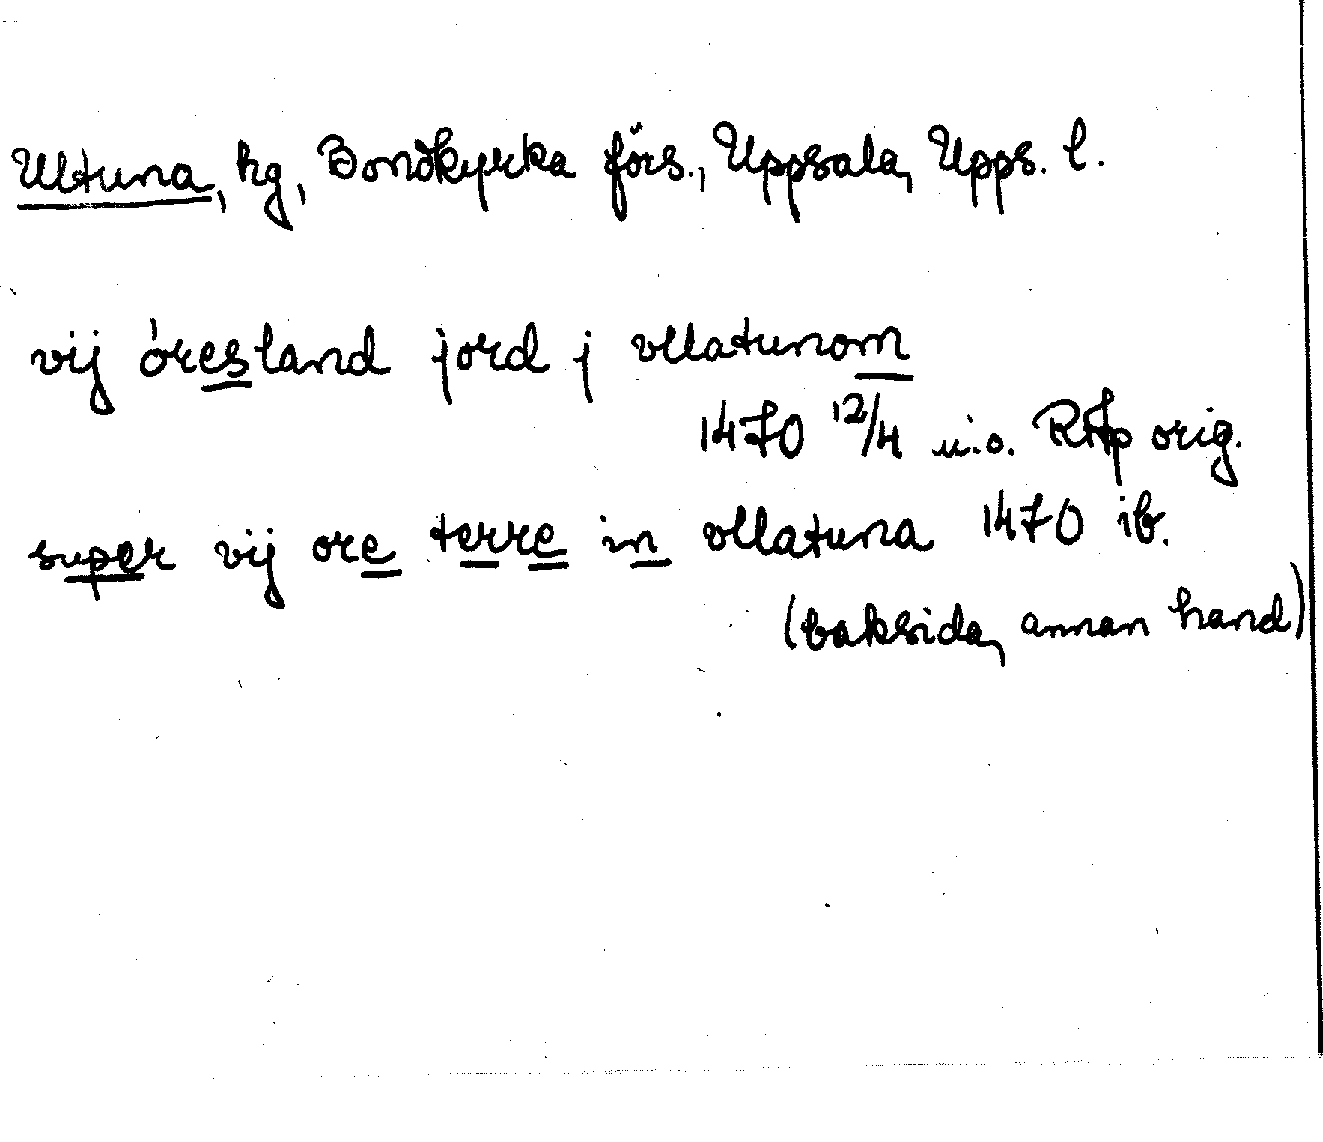 Ultuna, hg, Bondkyrka förs., Uppsala, Upps. l.
vij öresland jord j vllatunom
1470 12/4 u.o. RAp orig.
super vij ore terre in vllatuna 1470 ib.
(baksida, annan hand)